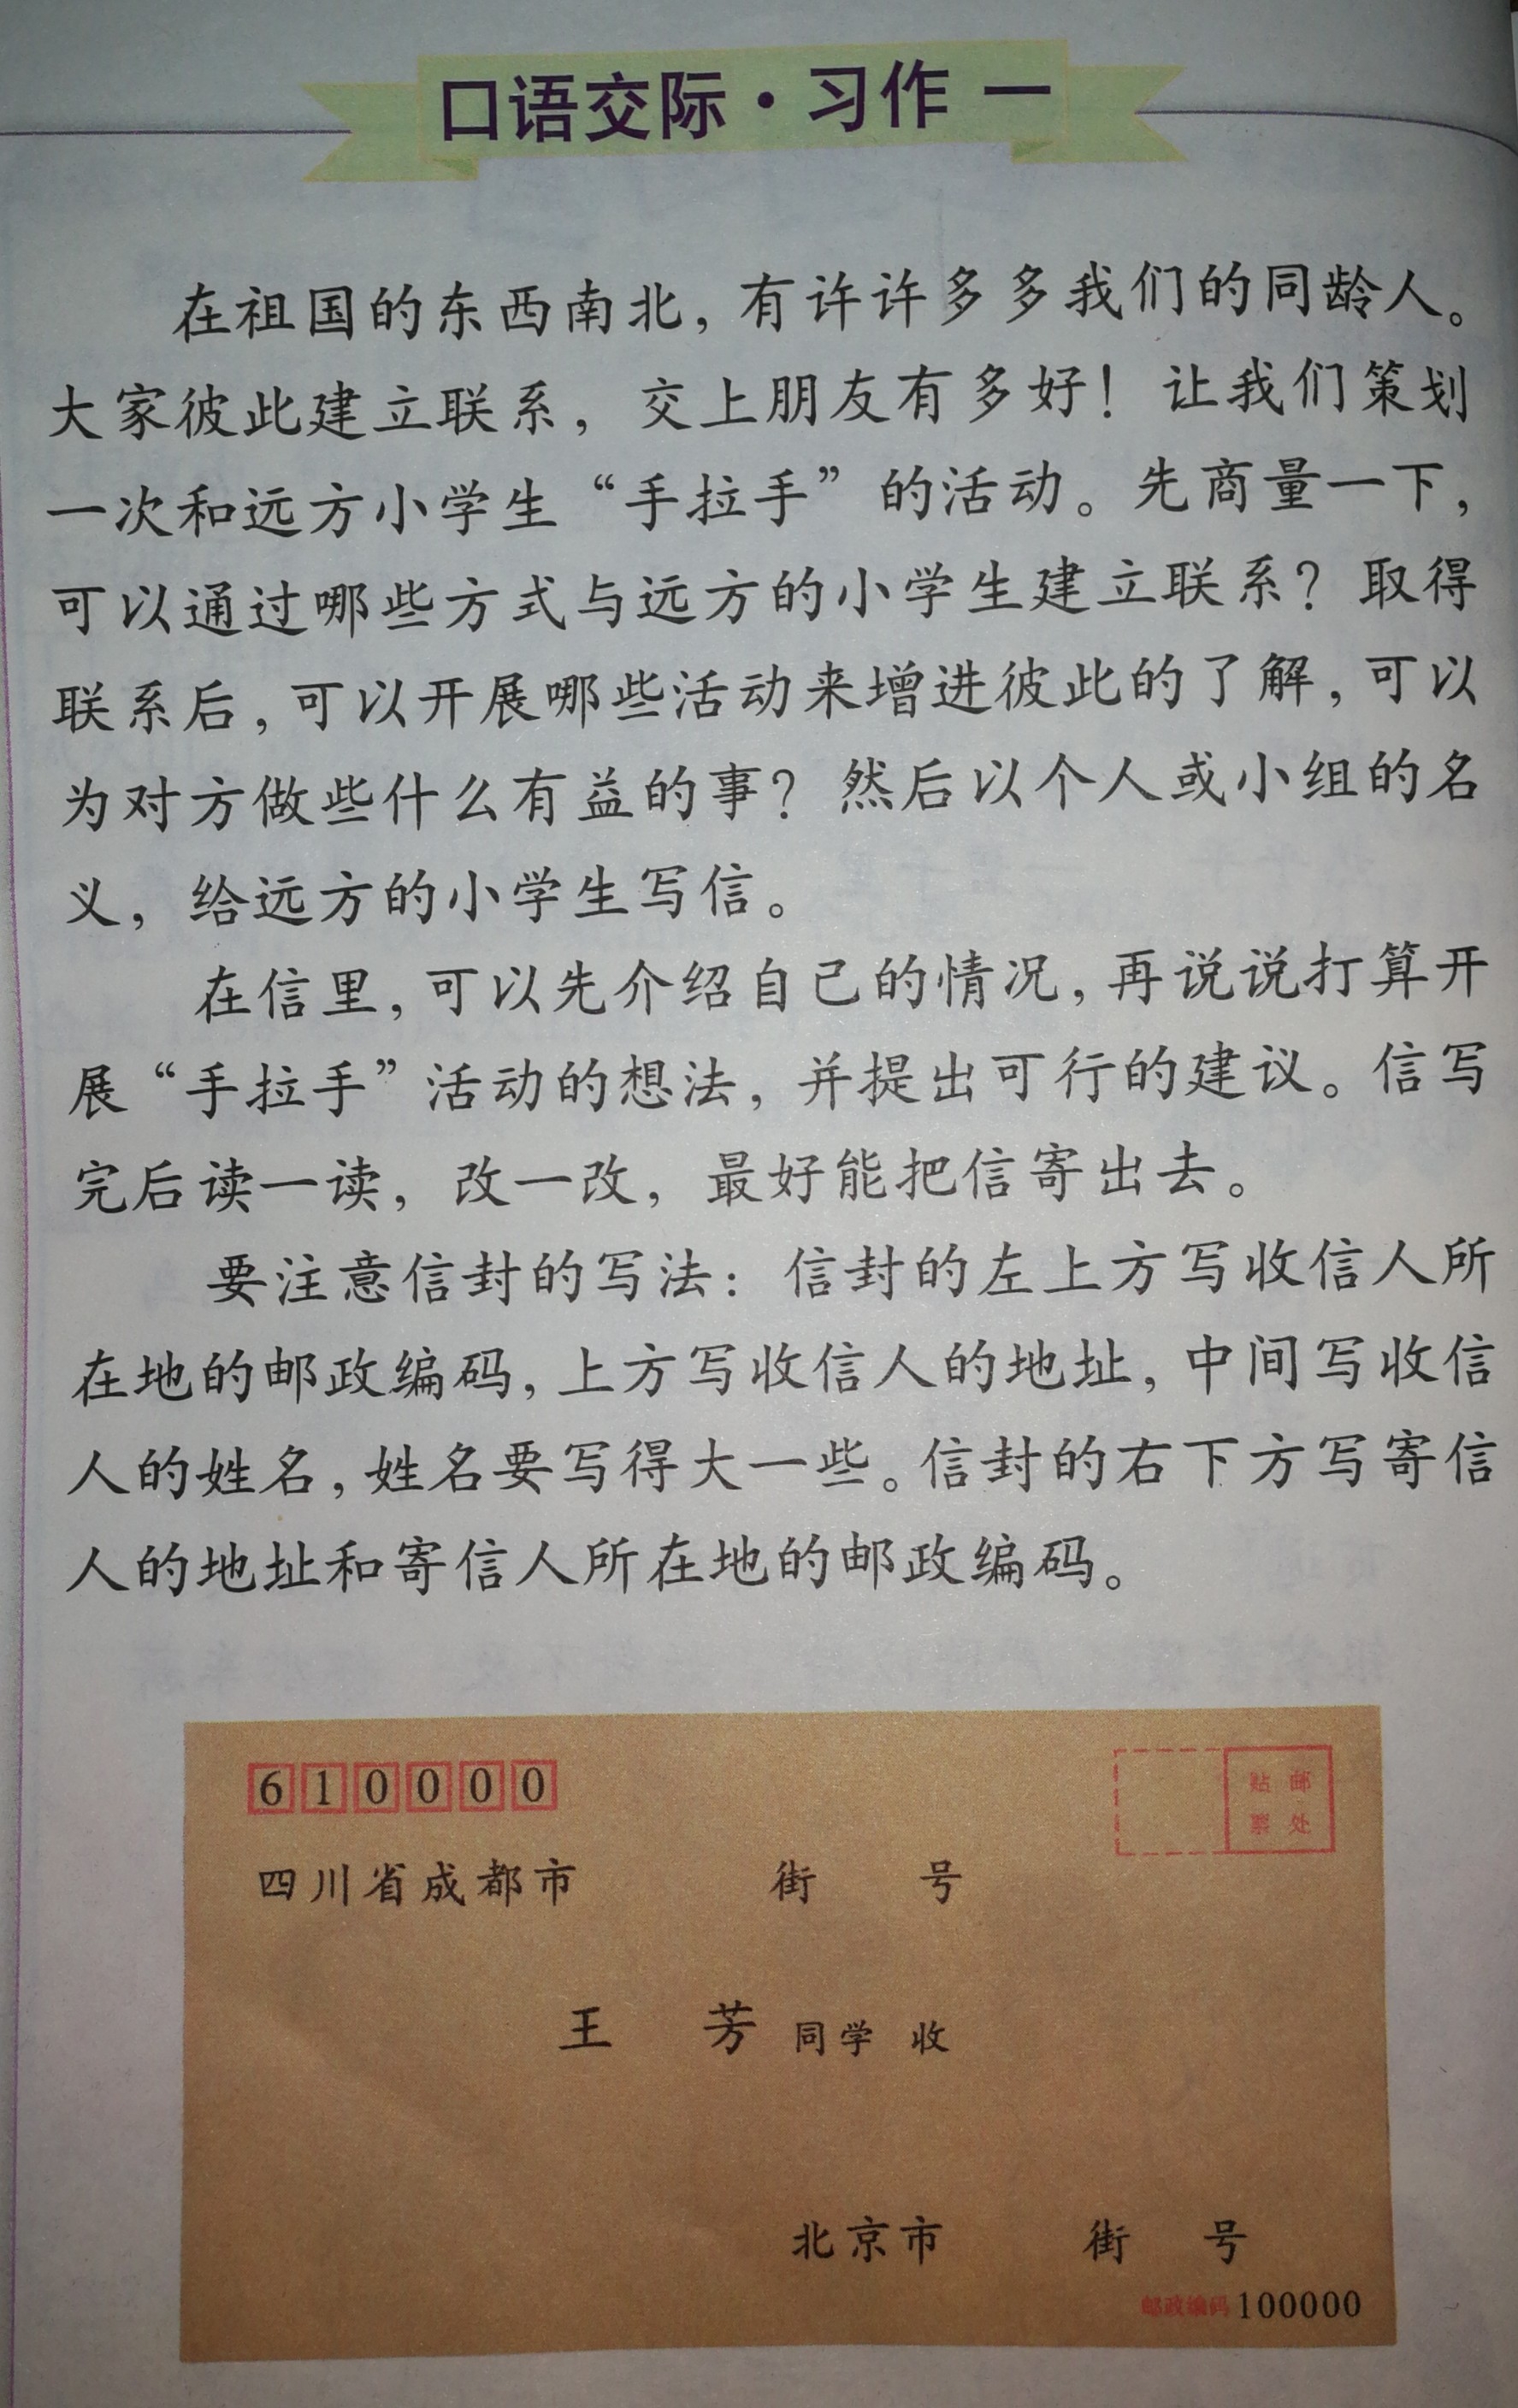 口语交际·习作 一
在祖国的东西南北，有许许多多我们的同龄人。
大家彼此建立联系，交上朋友有多好！让我们策划
一次和远方小学生“手拉手”的活动。先商量一下，
可以通过哪些方式与远方的小学生建立联系？取得
联系后，可以开展哪些活动来增进彼此的了解，可以
为对方做些什么有益的事？然后以个人或小组的名
义，给远方的小学生写信。
在信里，可以先介绍自己的情况，再说说打算开
展“手拉手”活动的想法，并提出可行的建议。信写
完后读一读，改一改，最好能把信寄出去。
要注意信封的写法：信封的左上方写收信人所
在地的邮政编码，上方写收信人的地址，中间写收信
人的姓名，姓名要写得大一些。信封的右下方写寄信
人的地址和寄信人所在地的邮政编码。
610000
贴邮
票处
四川省成都市 街 号
王 芳 同学 收
北京市 街 号
邮政编码 100000